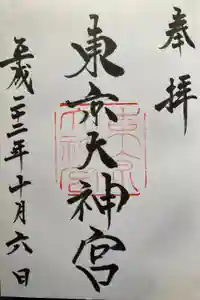 奉拝
東京大神宮
平成二十二年十月六日